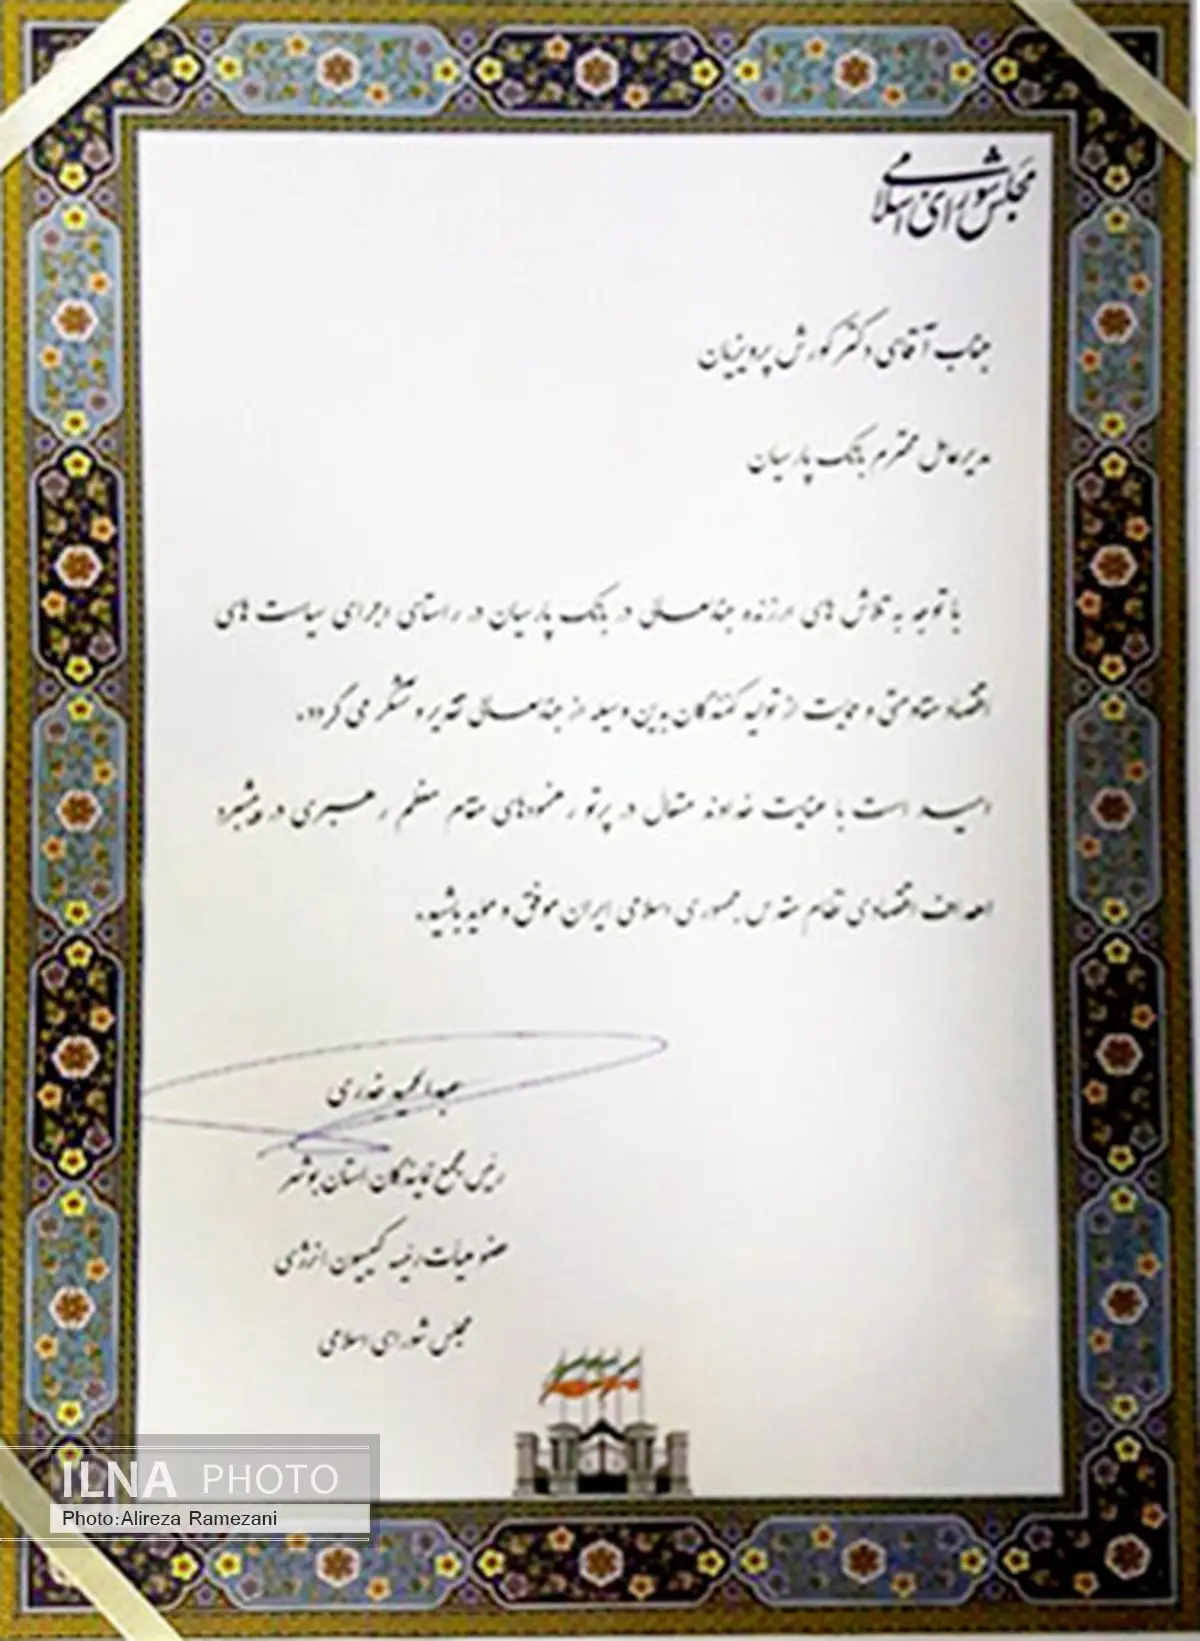 مجلس شورای اسلامی
جناب آقای دکتر کورش پرویزیان
مدیرعامل محترم بانک پارسیان
با توجه به تلاش های ارزنده جنابعالی در بانک پارسیان در راستای اجرای سیاست های
اقتصاد مقاومتی و حمایت از تولید کنندگان بدین وسیله از جنابعالی تقدیر و تشکر می گردد.
امید است با عنایت خداوند متعال در پرتو رهنمودهای مقام معظم رهبری در پیشبرد
اهداف اقتصادی نظام مقدس جمهوری اسلامی ایران موفق و موید باشید.
عبدالحمید خدری
رئیس مجمع نمایندگان استان بوشهر
عضو هیأت رئیسه کمیسیون انرژی
مجلس شورای اسلامی
ILNA PHOTO
Photo:Alireza Ramezani